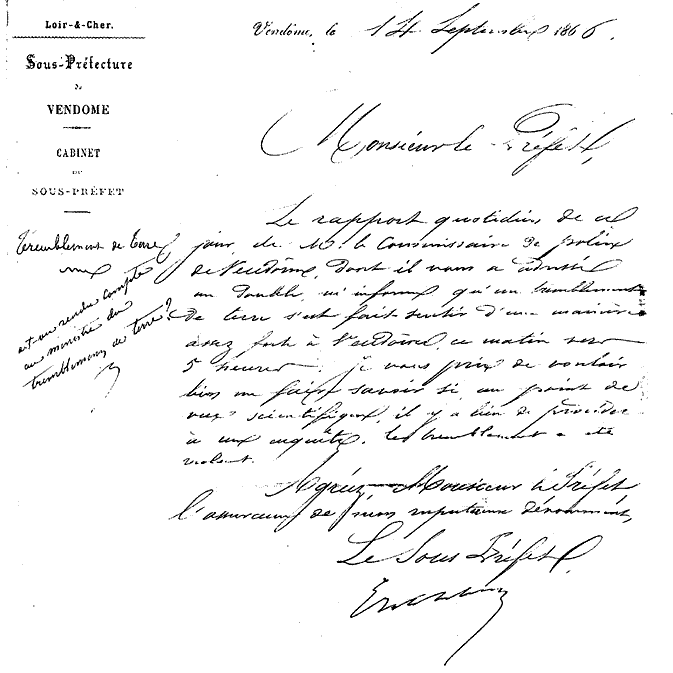 Loir-&-Cher.
Sous-Préfecture
de
VENDOME
CABINET
DU
SOUS-PRÉFET
Vendôme, le 14 Septembre 1866.
Monsieur le Préfet,
Tremblement de terre
a-t-on rendu compte
au ministre du
tremblement de terre?
Le rapport quotidien de ce
jour, de Mr. le Commissaire de police
de Vendôme, dont il vous a adressé
un double, m'informe qu'un tremblement
de terre s'est fait sentir d'une manière
assez forte à Vendôme, ce matin vers
5 heures, je vous prie de vouloir
bien me faire savoir si, au point de
vue scientifique, il y a lieu de procéder
à une enquête. Le tremblement a été
violent.
Agréez, Monsieur le Préfet
l'assurance de mon respectueux dévouement,
Le Sous Préfet,